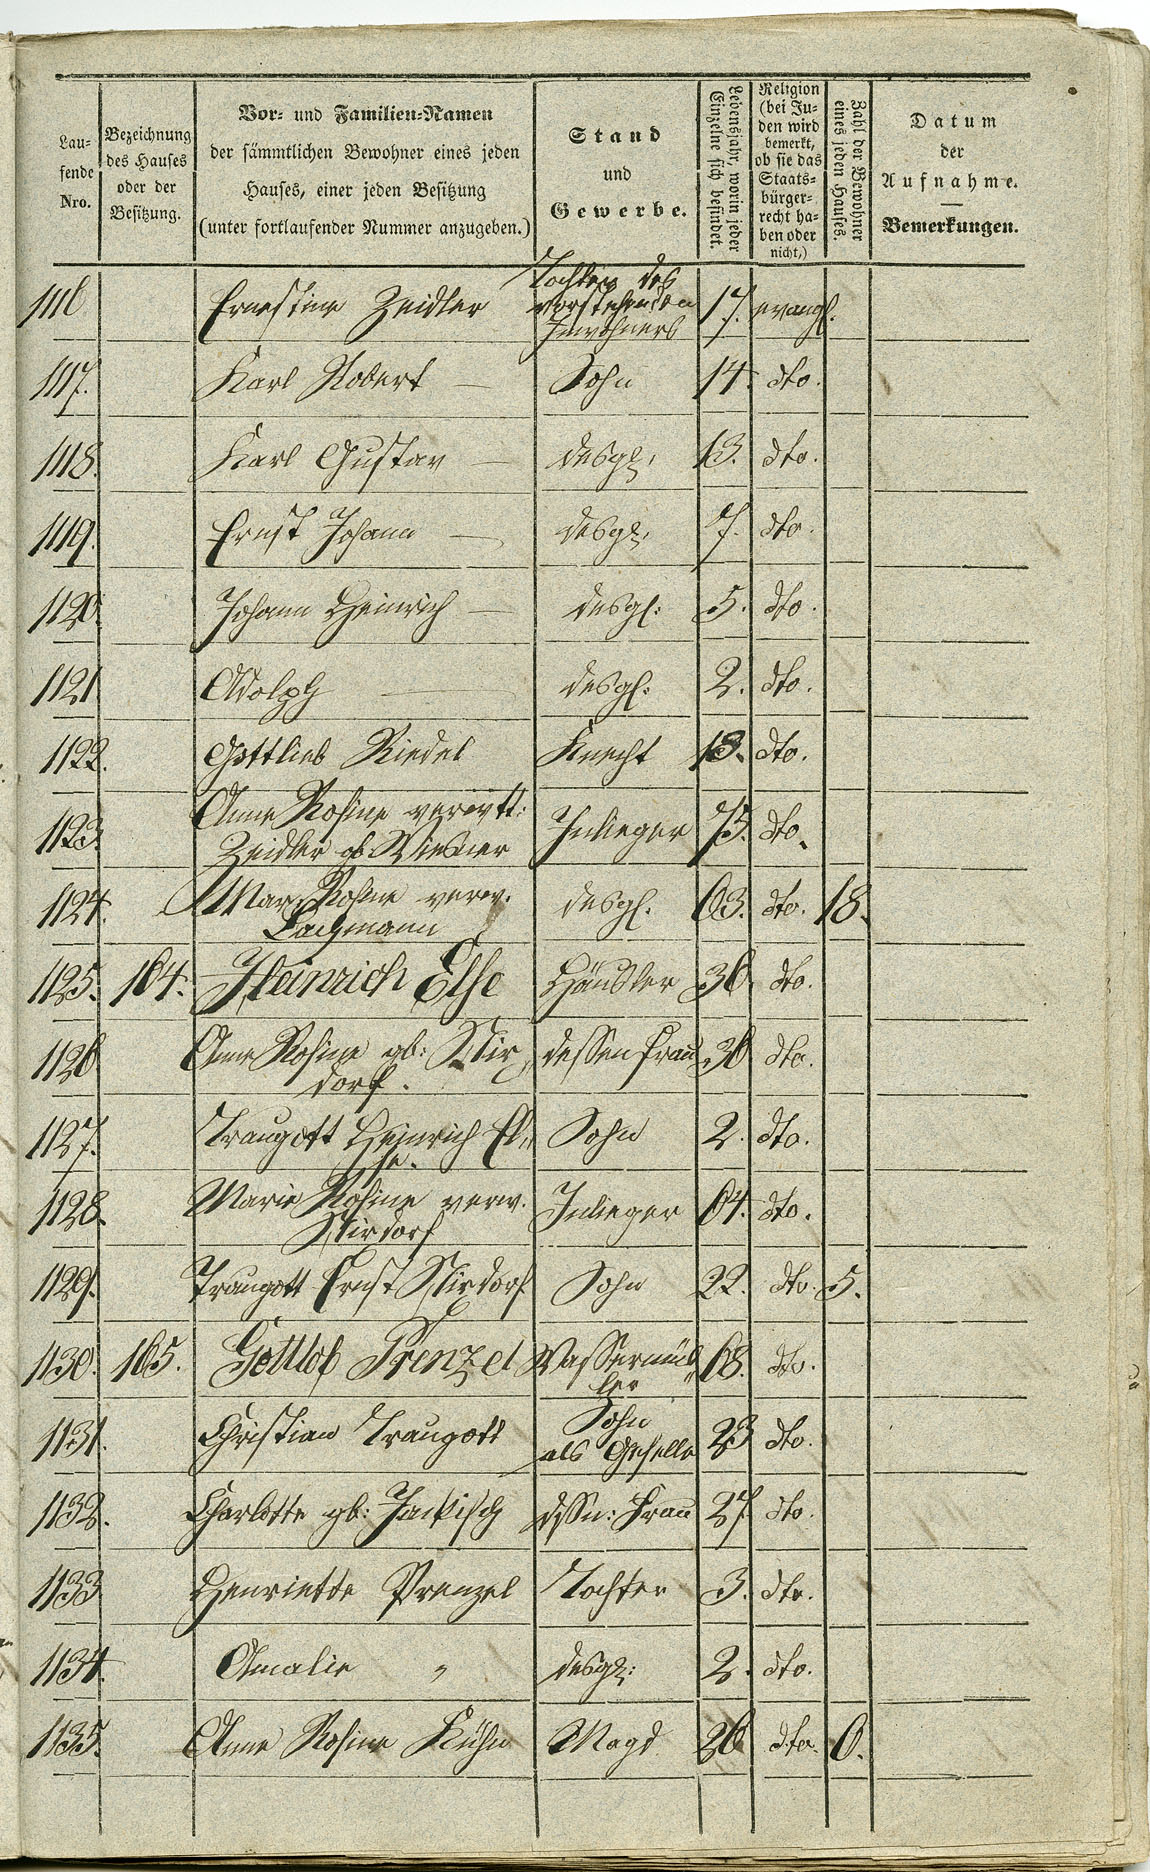 Lau-
fende
Nro.
Bezeichnung
des Hauses
oder der
Besitzung.
Vor- und Familien-Namen
der sämmtlichen Bewohner eines jeden
Hauses, einer jeden Besitzung
(unter fortlaufender Nummer anzugeben.)
Stand
und
Gewerbe.
Lebensjahr, worin jeder
Einzelne sich befindet.
Religion
(bei Ju-
den wird
bemerkt,
ob sie das
Staats-
bürger-
recht ha-
ben oder
nicht,)
Zahl der Bewohner
eines jeden Hauses.
Datum
der
Aufnahme.
Bemerkungen.
Tochter des
vorstehenden
1116 Ernestine Zeidler 17. evangl.
Inwohners
1117. Karl Robert — Sohn 14. dto.
1118. Karl Gustav — desgl. 13. dto.
1119. Ernst Johann — desgl. 7. dto.
1120. Johann Heinrich — desgl: 5. dto.
1121 Adolph — desgl. 2. dto.
1122. Gottlieb Riedel Knecht 18. dto.
Anne Rosine verwtt:
1123. Inlieger 75. dto.
Zeidler gb Wiesner
Mar. Rosine verw.
1124. desgl. 63. dto. 18.
Lachmann
1125. 164. Heinrich Else Häusler 36. dto.
1126. Anne Rosine gb: Stir- dessen Frau 36 dto.
dorf.
1127. Traugott Heinrich El- Sohn 2. dto.
se.
Marie Rosine verw.
1128. Inlieger 64. dto.
Stirdorf
1129. Traugott Ernst Stirdorf Sohn 22. dto. 5.
1130. 165. Gottlob Prenzel Wassermül- 68. dto.
ler
Sohn
1131. Christian Traugott 23 dto.
als Geselle
1132. Charlotte gb: Jackisch dssn: Frau 27. dto.
1133 Henriette Prenzel Tochter 3. dto.
1134. Amalie " desgl: 2. dto.
1135. Anne Rosine Kühn Magd 26 dto. 6.